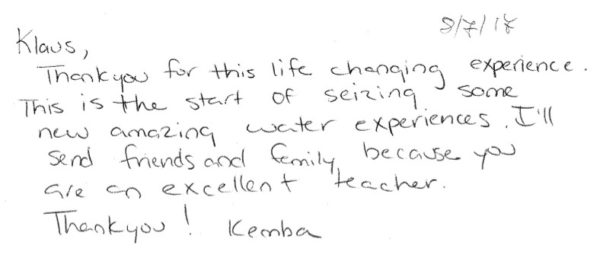 8/7/18
Klaus,
Thankyou for this life changing experience.
This is the start of seizing some
new amazing water experiences. I'll
send friends and family because you
are an excellent teacher.
Thankyou! Kemba